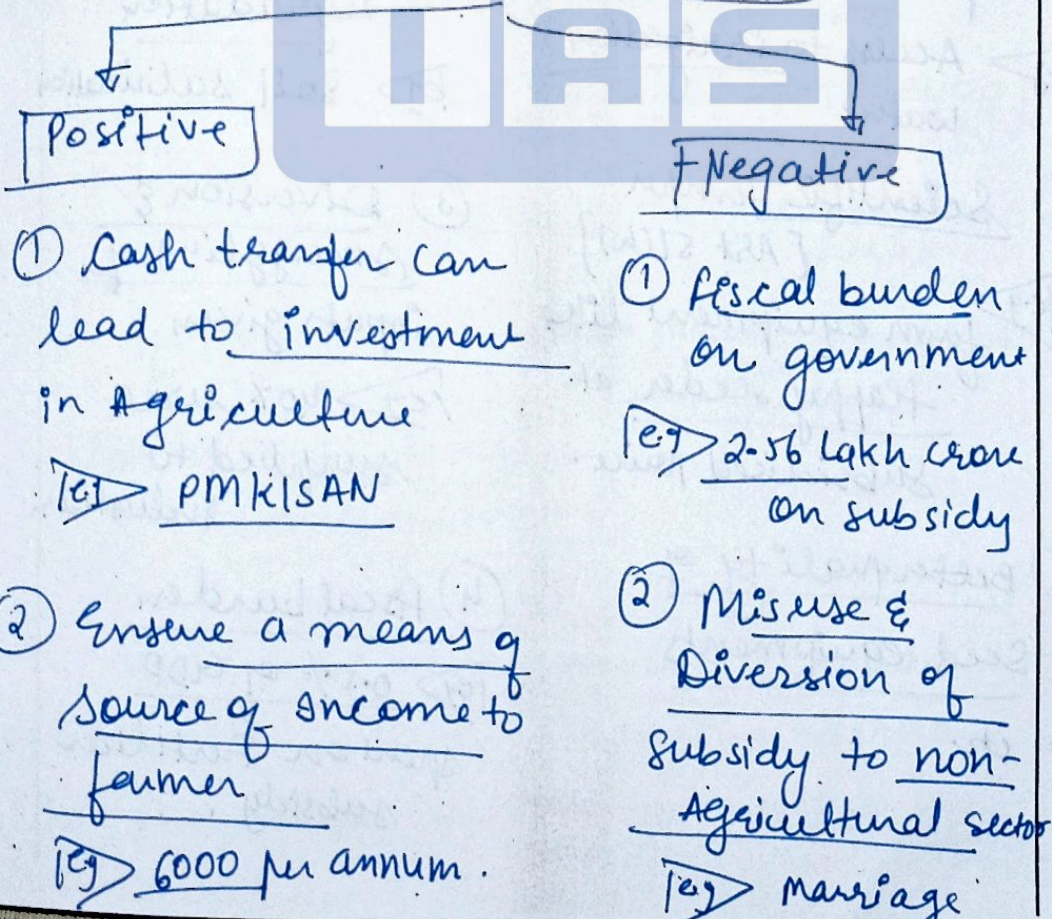 IAS
Positive
① Cash transfer can
lead to investment
in Agriculture
eg PMKISAN
② Ensure a means of
source of income to
farmer
eg 6000 per annum.
Negative
① fiscal burden
on government
eg 2.56 lakh crore
on subsidy
② Misuse &
Diversion of
subsidy to non-
Agricultural sector
eg marriage